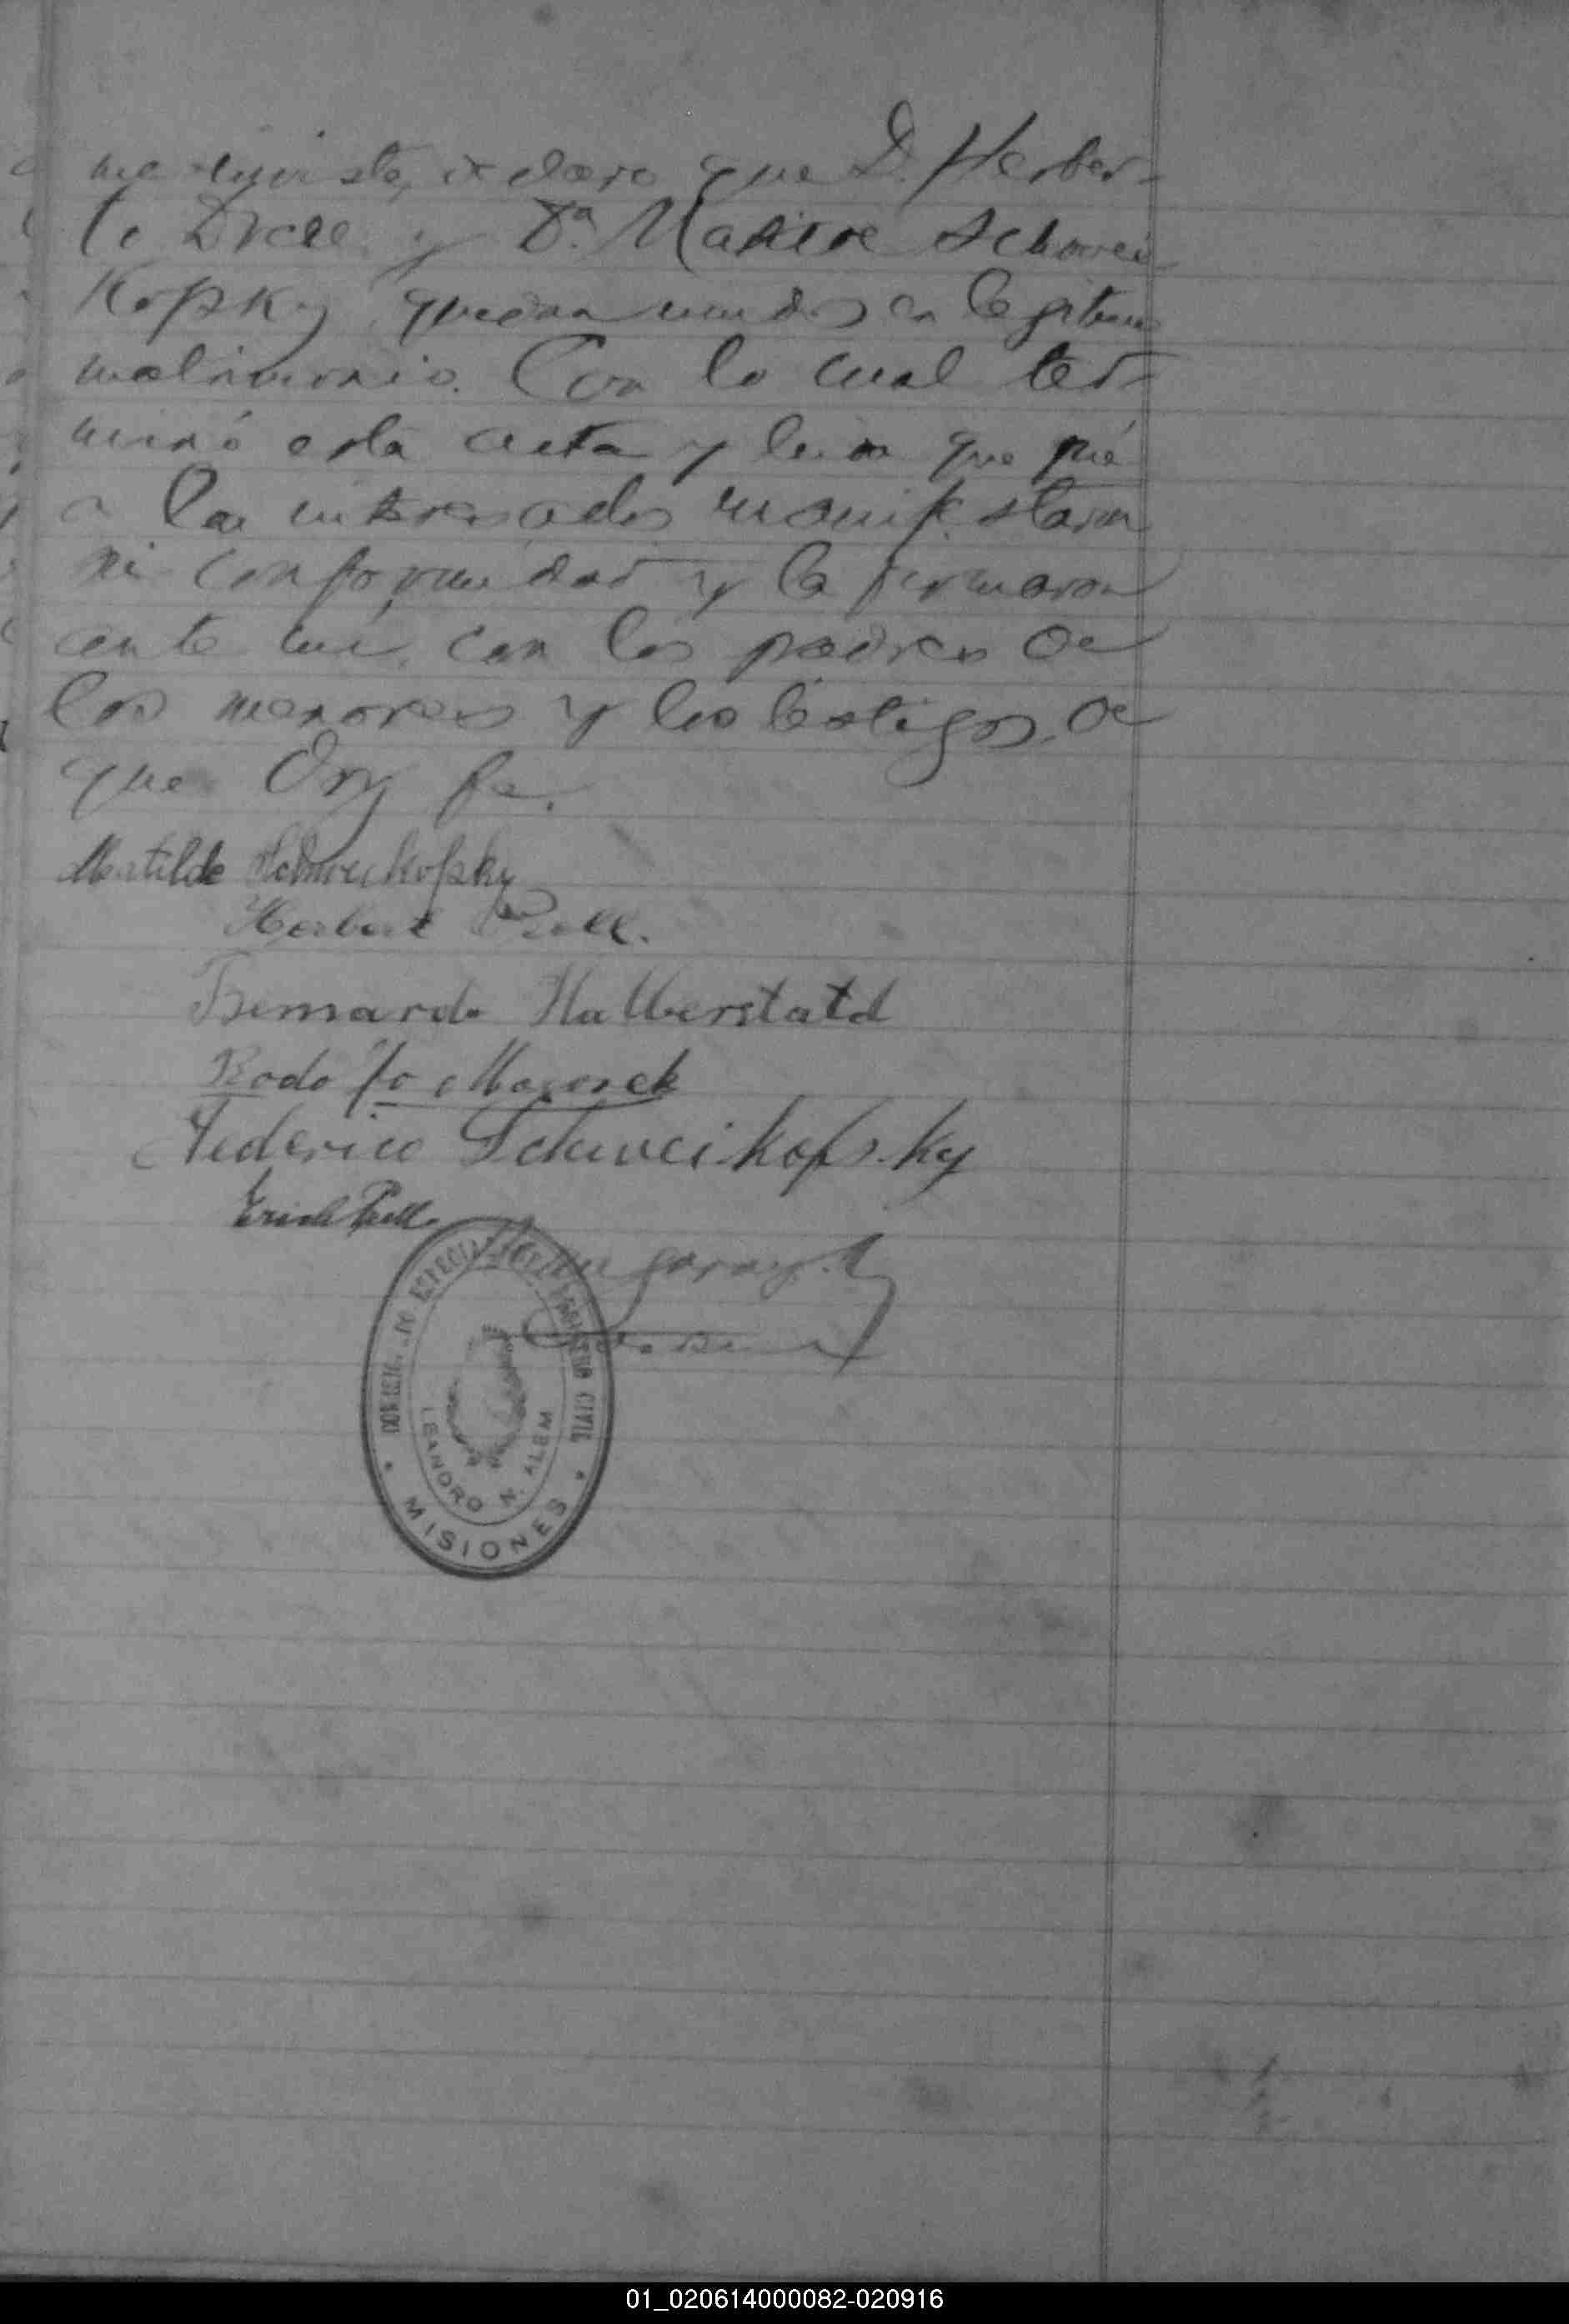 me inviste, declaro que D. Herber-
to Prell y Dª. Matilde Schwei
Kofsky quedan unidos en legitimo
matrimonio. Con lo cual ter-
minó esta acta y leida que fué
a los interesados manifestaron
su conformidad y la firmaron
ante mi, con los padres de
los menores y los testigos, de
que Doy fe.
Matilde Schweikofsky
Herbert Prell.
Bernardo Halberstatd
Rodolfo
Federico Schweikofsky
Erich Prell
ESPECIAL REGISTRO CIVIL
LEANDRO N. ALEM
* MISIONES *
01_020614000082-020916